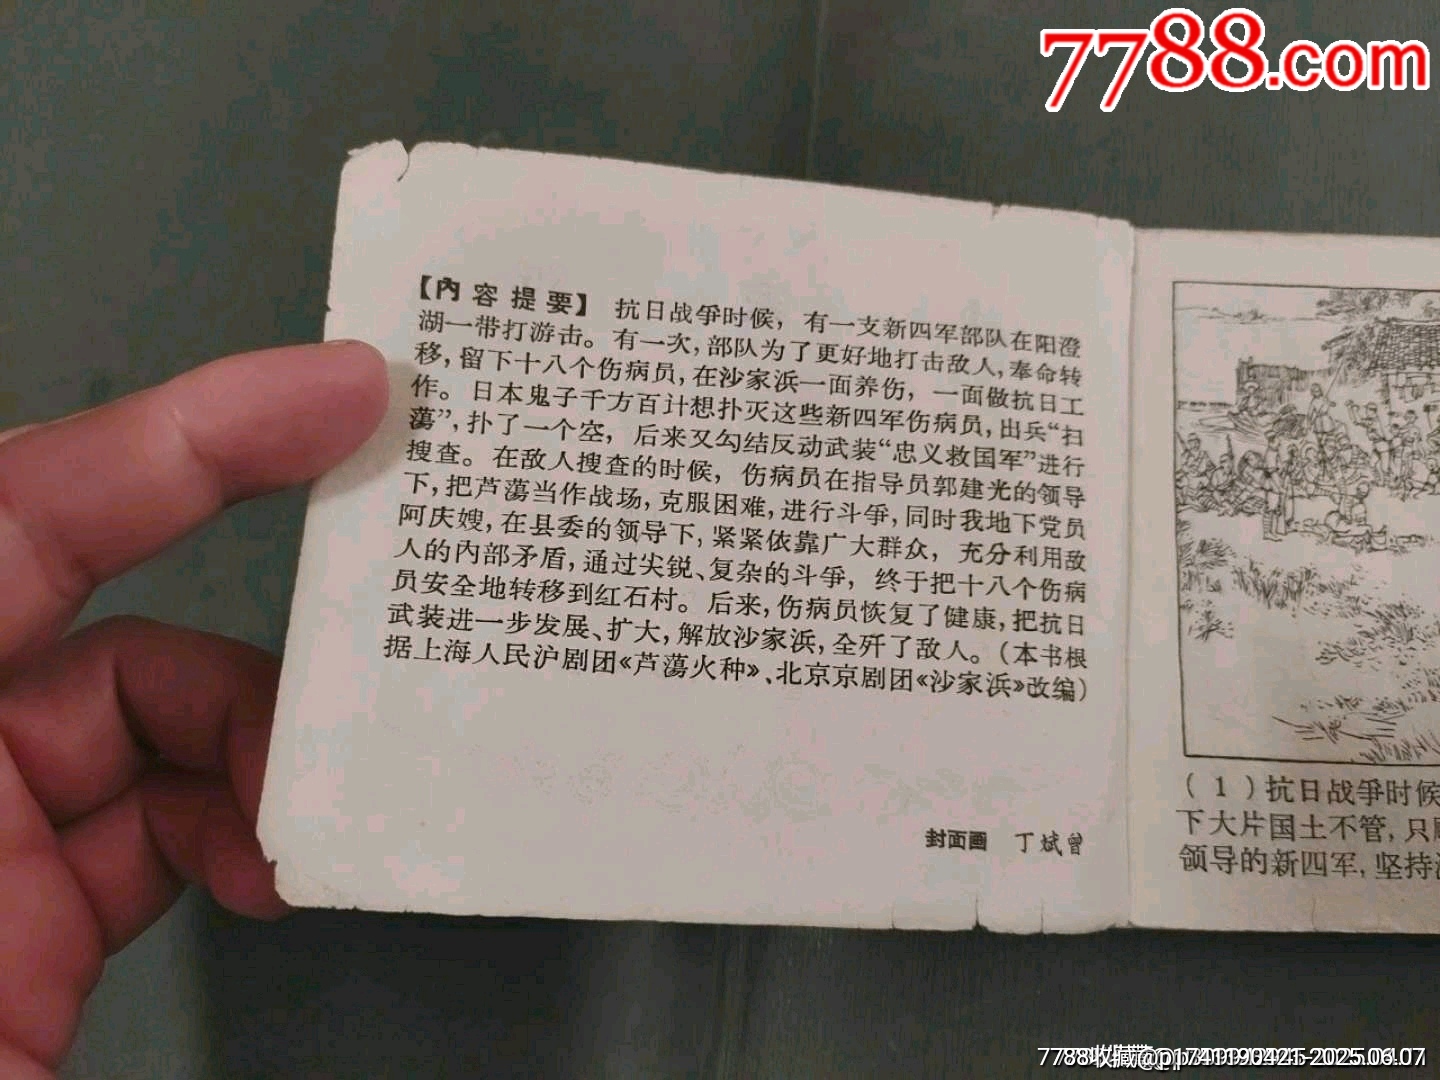 7788.com
【内容提要】 抗日战爭时候，有一支新四军部队在阳澄
湖一带打游击。有一次，部队为了更好地打击敌人，奉命转
移，留下十八个伤病员，在沙家浜一面养伤，一面做抗日工
作。日本鬼子千方百计想扑灭这些新四军伤病员，出兵“扫
蕩”，扑了一个空，后来又勾结反动武装“忠义救国军”进行
搜查。在敌人搜查的时候，伤病员在指导员郭建光的领导
下，把芦蕩当作战场，克服困难，进行斗爭，同时我地下党员
阿庆嫂，在县委的领导下，紧紧依靠广大群众，充分利用敌
人的内部矛盾，通过尖锐、复杂的斗爭，终于把十八个伤病
员安全地转移到红石村。后来，伤病员恢复了健康，把抗日
武装进一步发展、扩大，解放沙家浜，全歼了敌人。（本书根
据上海人民沪剧团《芦蕩火种》、北京京剧团《沙家浜》改编）
封面画 丁斌曾
（1）抗日战爭时候
下大片国土不管，只
领导的新四军，坚持
7788收藏
2025.06.07